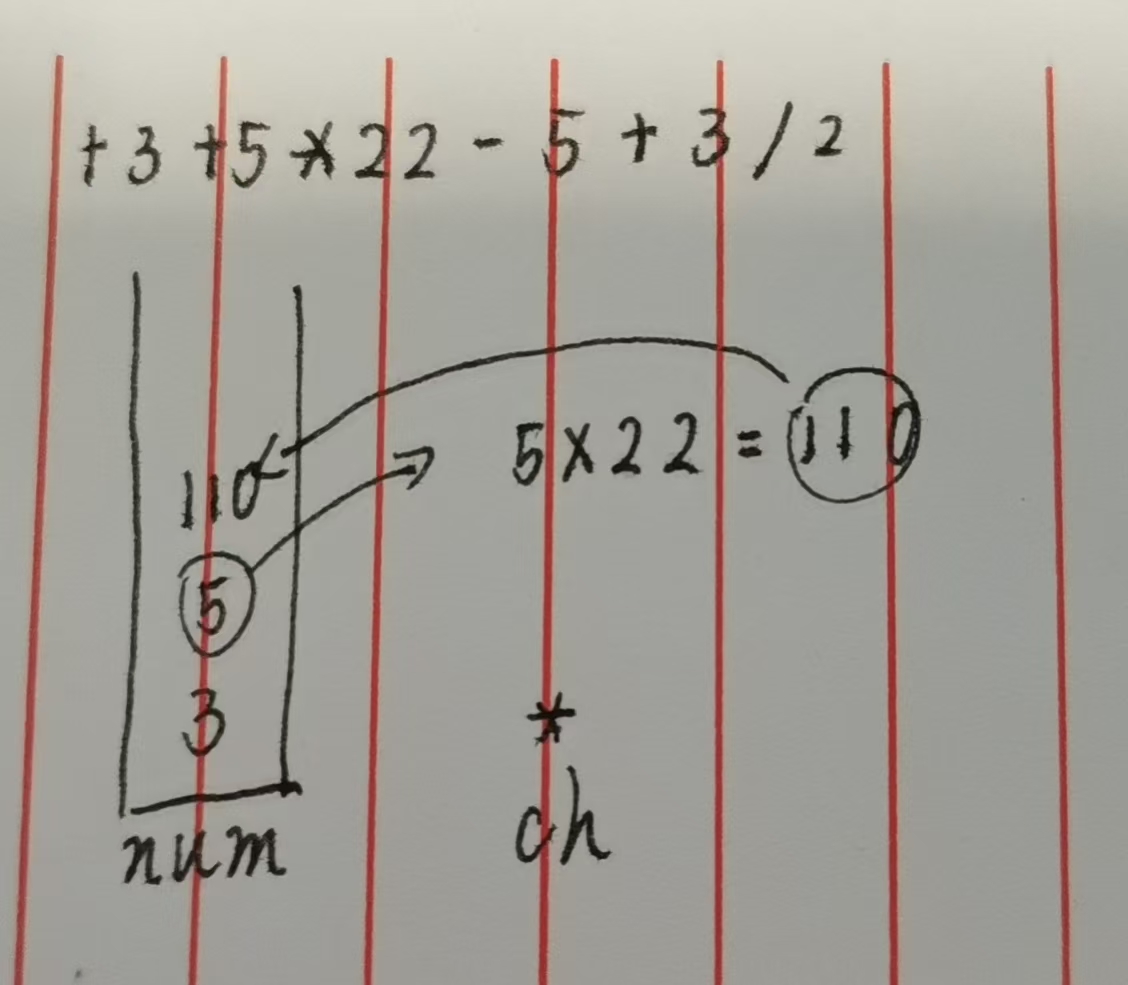 +3+5*22-5+3/2
5×22=110
110
5
3
*
num
ch